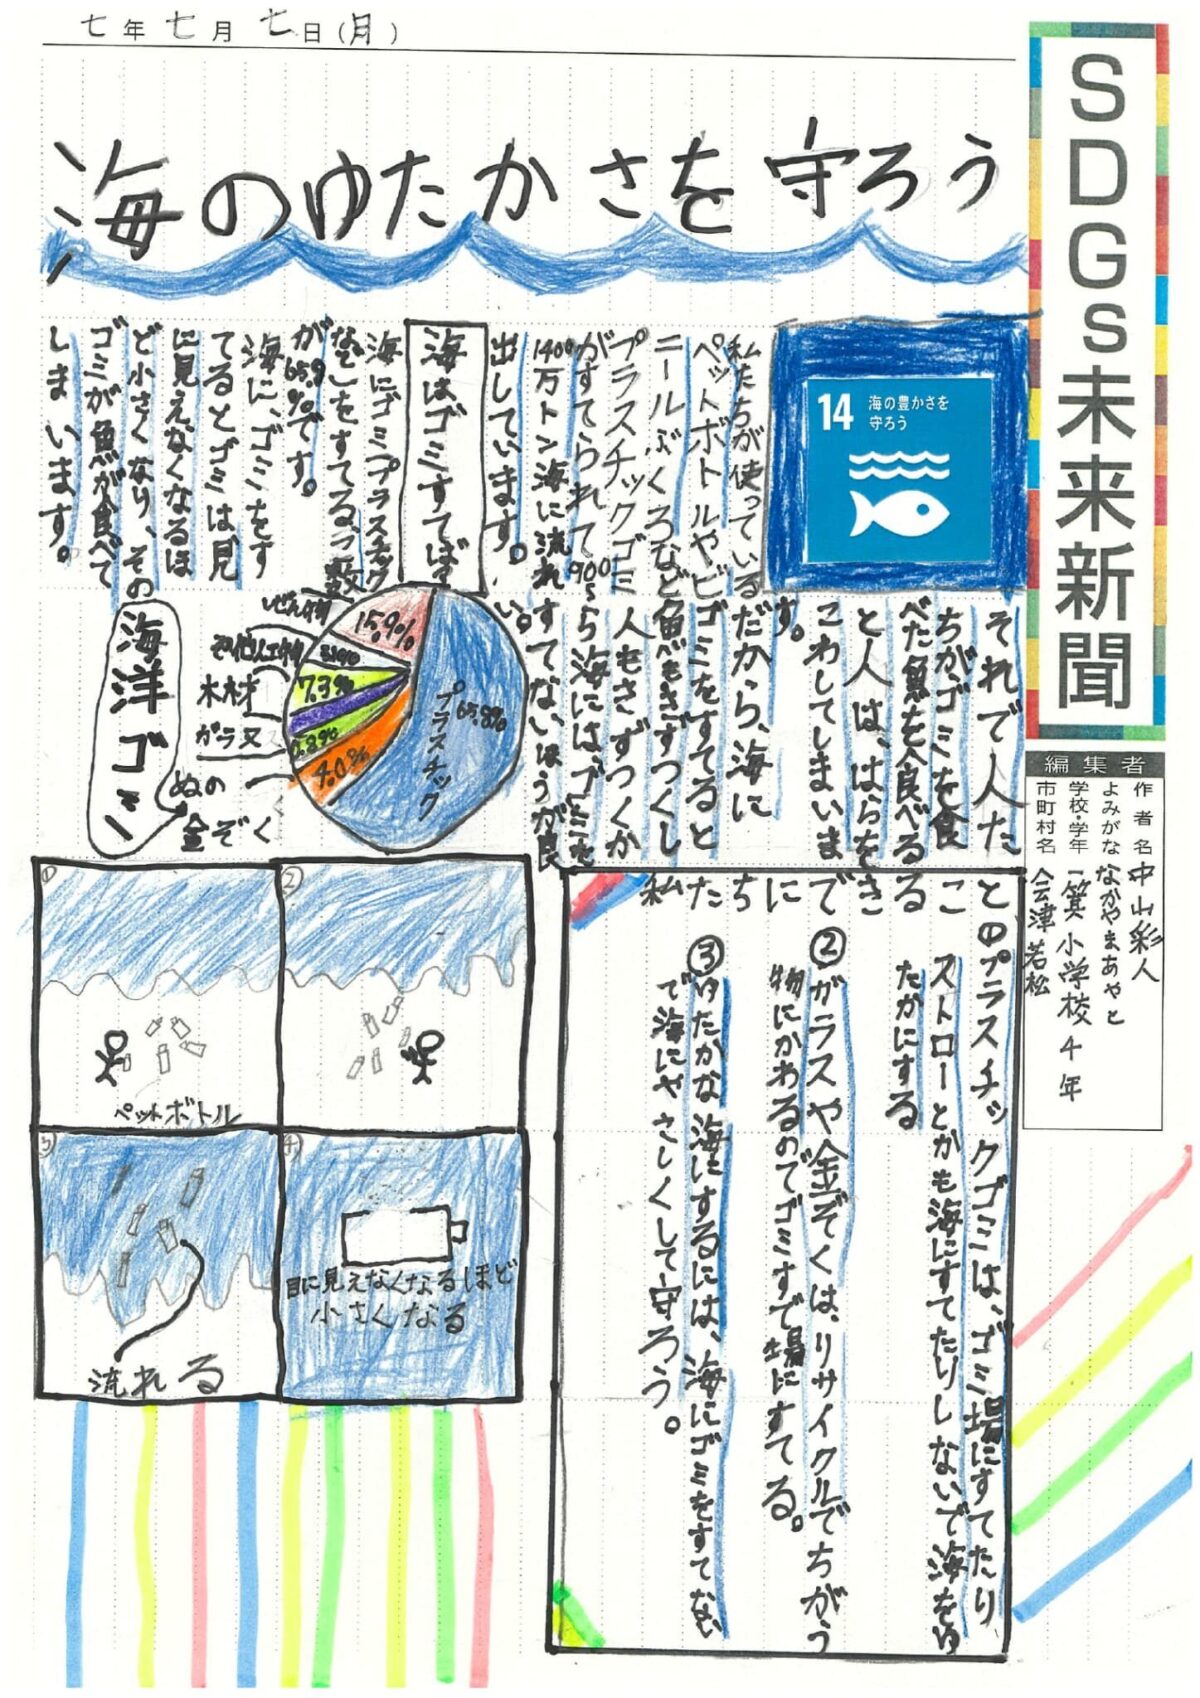 七年七月七日(月)
SDGs未来新聞
編集者
作者名 中山彩人
よみがな なかやまあやと
学校・学年 一箕小学校4年
市町村名 会津若松
海のゆたかさを守ろう
14 海の豊かさを
守ろう
私たちが使っている
ペットボトルやビ
ニールぶくろなど
プラスチックゴミ
がすてられて900〜
1400万トン海に流れ
出しています。
海はゴミすてば
海にゴミプラスチック
などをすてる
が65.8%です。
海に、ゴミをす
てるとゴミは見
に見えなくなるほ
ど小さくなり、その
ゴミが魚が食べて
しまいます。
それで人た
ちがゴミを食
べた魚を食べる
と人は、はらを
こわしてしまいま
す。
だから、海に
ゴミをすてると
魚もきずつくし
人もきずつくか
ら海には、ゴミを
すてないほうが良
い。
海洋ゴミ
プラスチック
65.8%
15.9%
7.3%
4.0%
木材
ガラス
ぬの
金ぞく
①
ペットボトル
②
③
流れる
④
目に見えなくなるほど
小さくなる
私たちにできること
①プラスチックゴミは、ゴミ場にすてたり
ストローとかも海にすてたりしないで海をゆ
たかにする
②ガラスや金ぞくは、リサイクルでちがう
物にかわるのでゴミすで場にすてる。
③ゆたかな海にするには、海にゴミをすてない
で海にやさしくして守ろう。